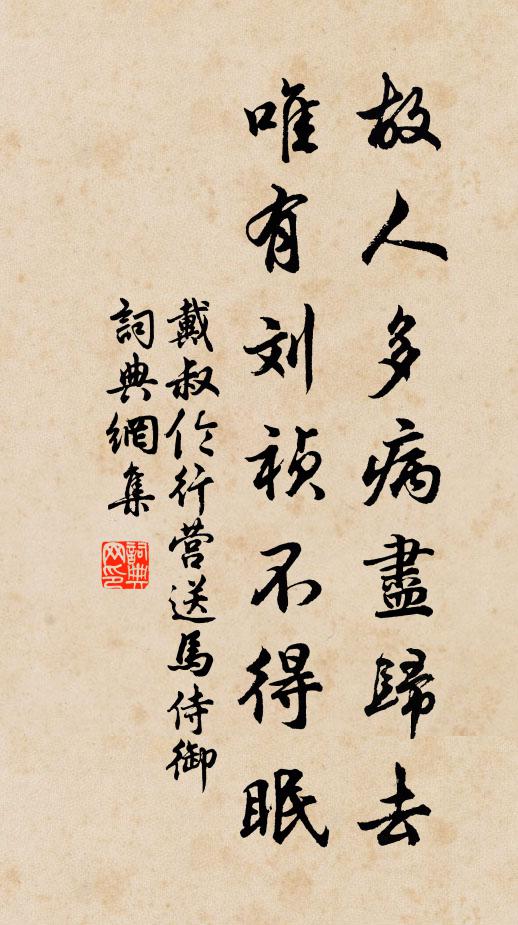 故人多病盡歸去
唯有刘祯不得眠
戴叔伦行营送馬侍御
詞典網集
詞典
网印